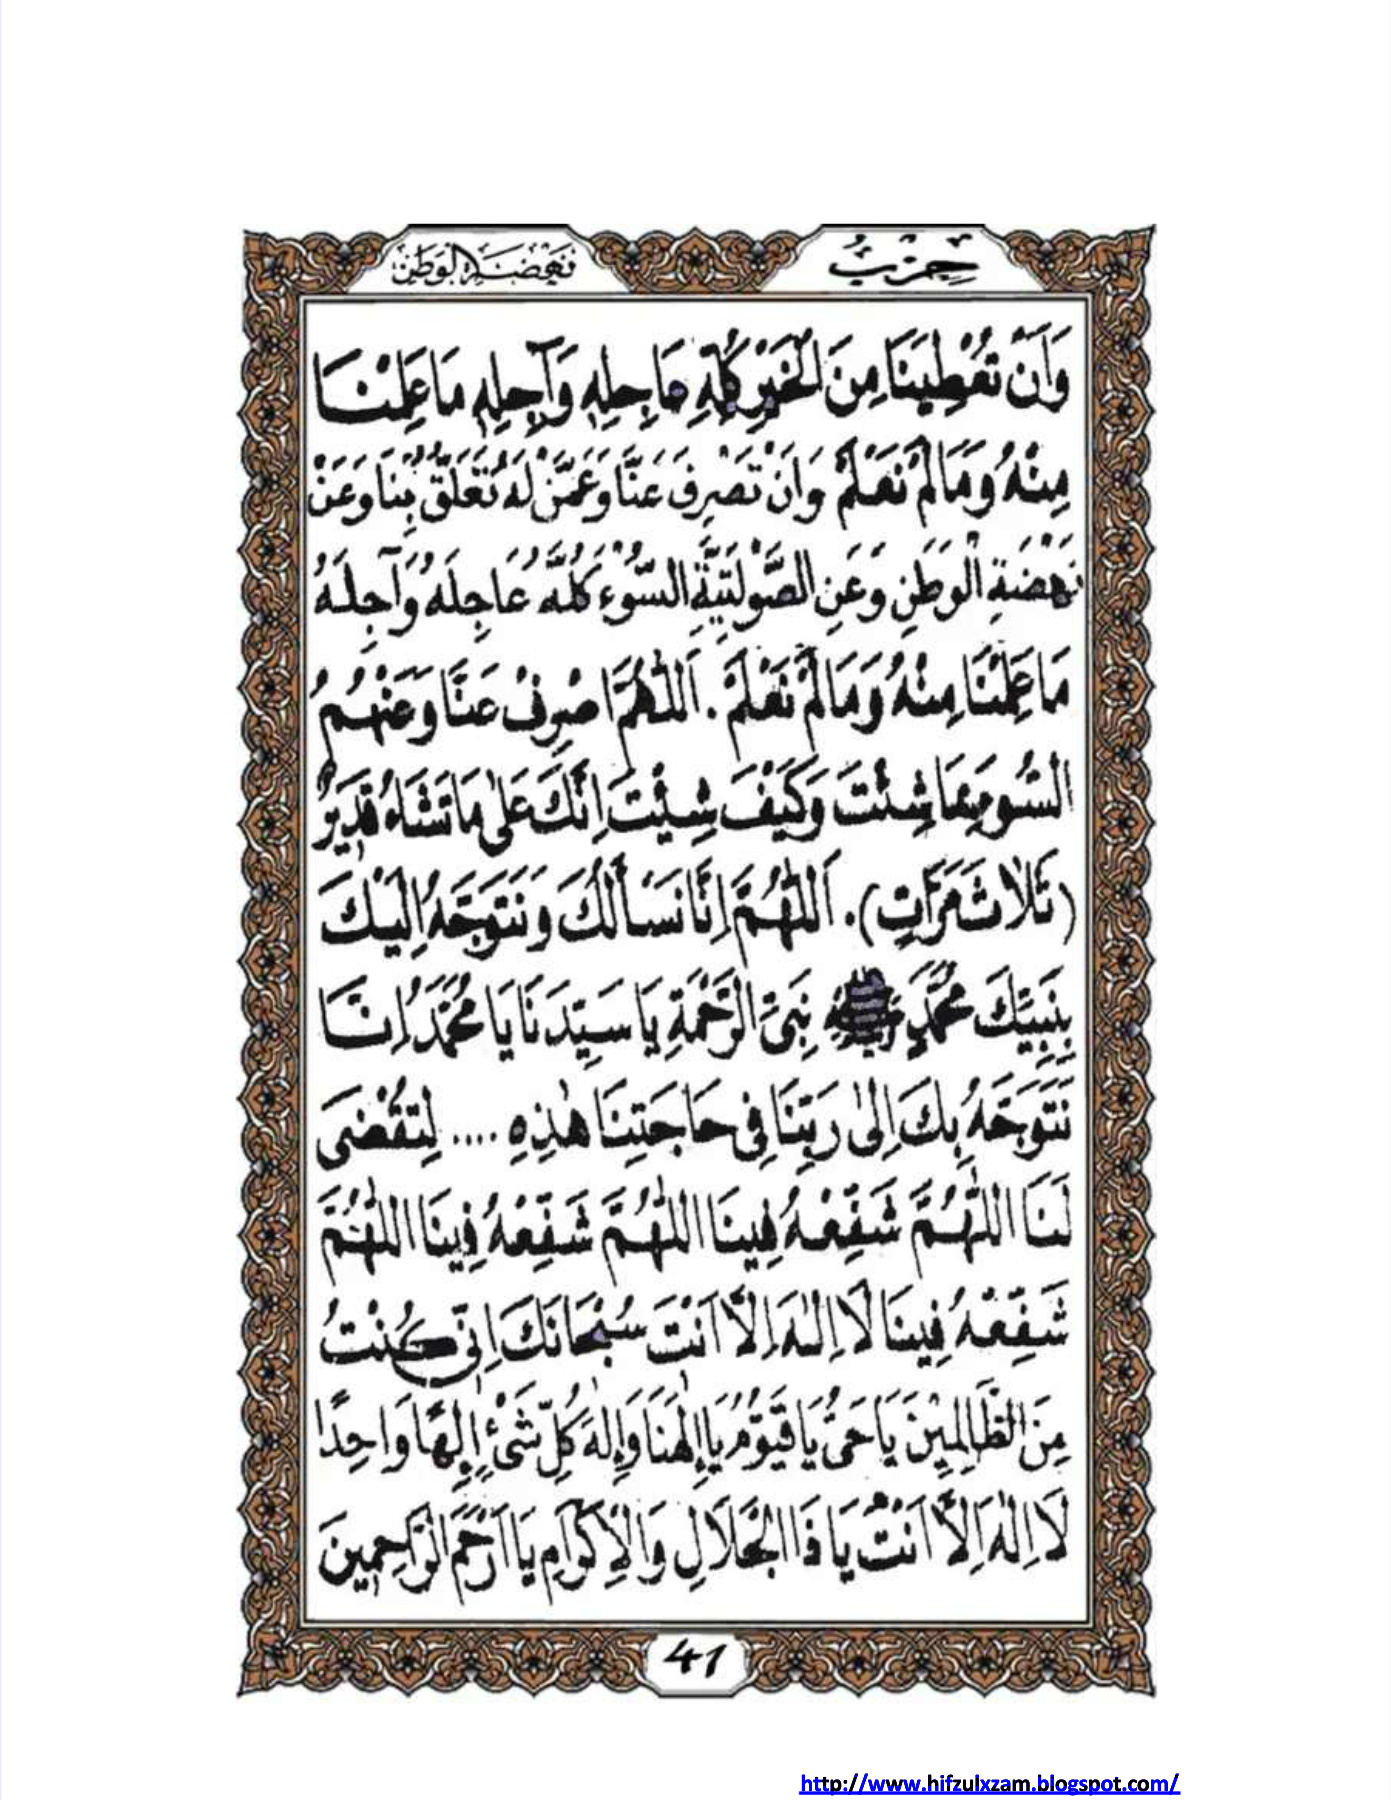 حِزْبُ نَهْضَةِ الْوَطَنِ
وَاَنْ تُعْطِيَنَا مِنَ الْخَيْرِ كُلِّهِ عَاجِلِهِ وَآجِلِهِ مَا عَلِمْنَا
مِنْهُ وَمَا لَمْ نَعْلَمْ وَاَنْ تَصْرِفَ عَنَّا وَعَمَّنْ لَهُ تَعَلُّقٌ بِنَا وَعَنْ
نَهْضَةِ الْوَطَنِ وَعَنِ الصَّوْلَتِيَّةِ السُّوْءَ كُلَّهُ عَاجِلَهُ وَآجِلَهُ
مَا عَلِمْنَا مِنْهُ وَمَا لَمْ نَعْلَمْ . اَللّٰهُمَّ اصْرِفْ عَنَّا وَعَنْهُمُ
السُّوءَ بِمَا شِئْتَ وَكَيْفَ شِئْتَ اِنَّكَ عَلٰى مَا تَشَاءُ قَدِيْرٌ
(ثَلَاثَ مَرَّاتٍ) . اَللّٰهُمَّ اِنَّا نَسْأَلُكَ وَنَتَوَجَّهُ اِلَيْكَ
بِنَبِيِّكَ مُحَمَّدٍ ﷺ نَبِيِّ الرَّحْمَةِ يَا سَيِّدَنَا يَا مُحَمَّدُ اِنَّا
نَتَوَجَّهُ بِكَ اِلٰى رَبِّنَا فِى حَاجَتِنَا هٰذِهِ .... لِتُقْضٰى
لَنَا اللّٰهُمَّ شَفِّعْهُ فِينَا اللّٰهُمَّ شَفِّعْهُ فِينَا اللّٰهُمَّ
شَفِّعْهُ فِينَا لَا اِلٰهَ اِلَّا اَنْتَ سُبْحَانَكَ اِنِّى كُنْتُ
مِنَ الظَّالِمِيْنَ يَا حَيُّ يَا قَيُّوْمُ يَا إِلٰهَنَا وَإِلٰهَ كُلِّ شَيْءٍ إِلٰهًا وَاحِدًا
لَا اِلٰهَ اِلَّا اَنْتَ يَا ذَا الْجَلَالِ وَالْاِكْرَامِ يَا اَرْحَمَ الرَّاحِمِينَ
41
http://www.hifzulxzam.blogspot.com/